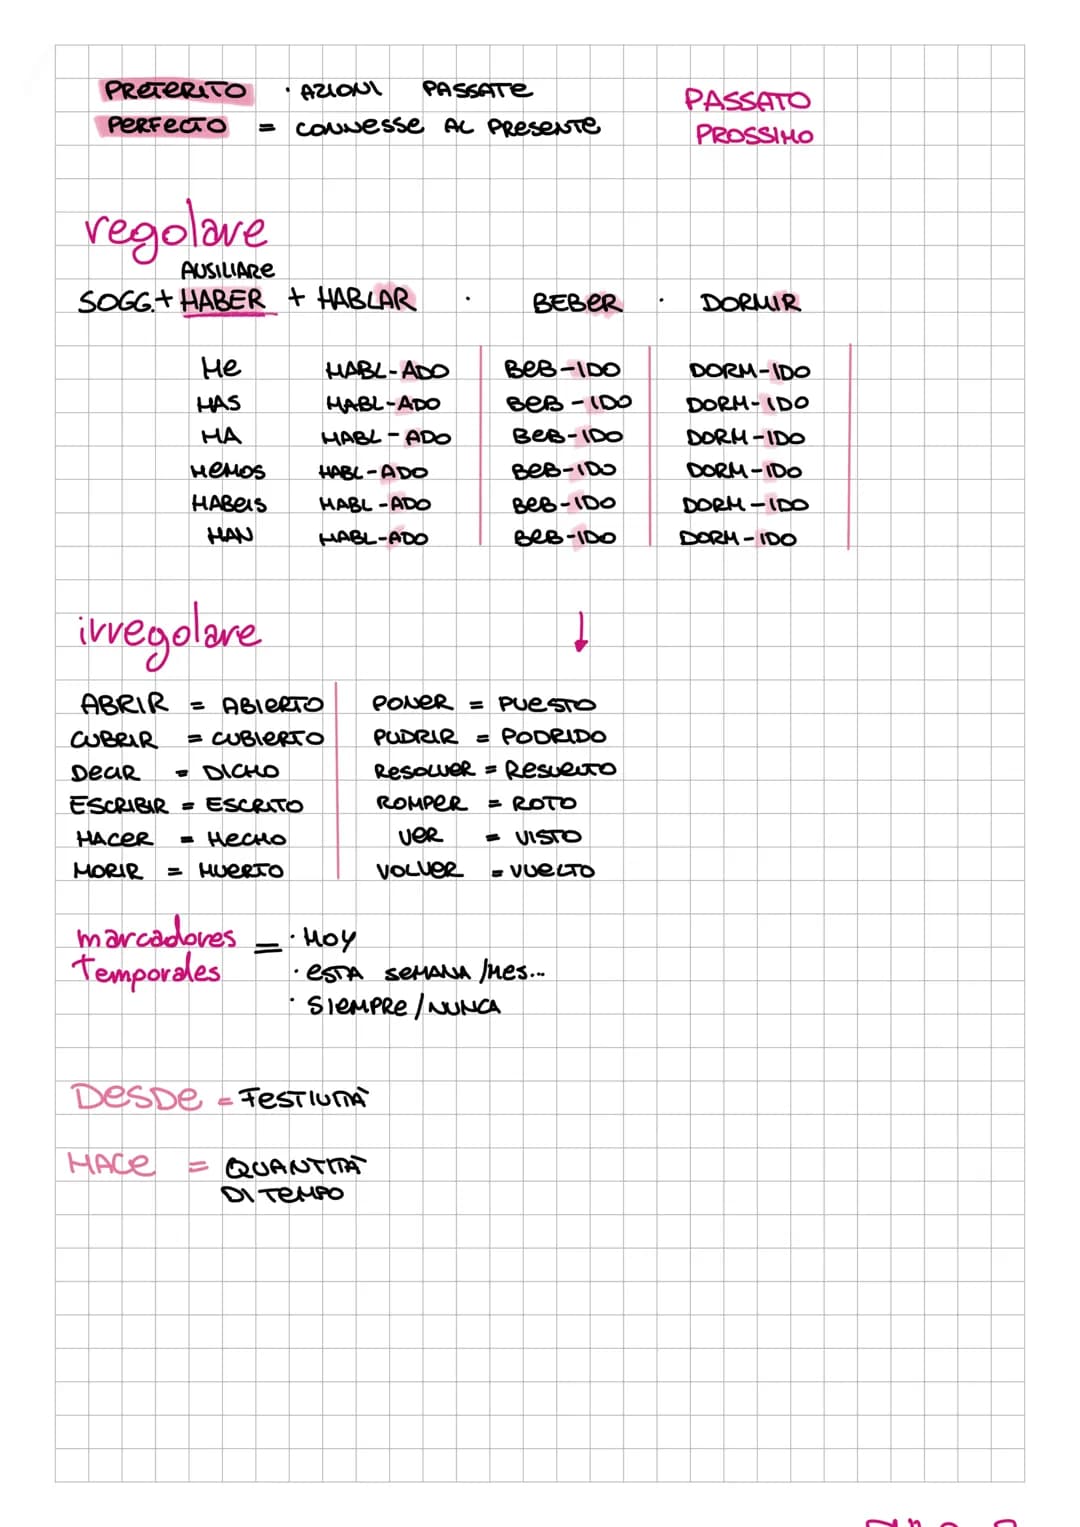 PRETERITO · AZIONI PASSATE
PERFECTO = CONNESSE AL PRESENTE
PASSATO
PROSSIMO
regolare
AUSILIARE
SOGG.+ HABER + HABLAR · BEBER · DORMIR
HE HABL-ADO BEB-IDO DORM-IDO
HAS HABL-ADO BEB-IDO DORM-IDO
HA HABL-ADO BEB-IDO DORM-IDO
HEMOS HABL-ADO BEB-IDO DORM-IDO
HABEIS HABL-ADO BEB-IDO DORM-IDO
HAN HABL-ADO BEB-IDO DORM-IDO
irregolare ↓
ABRIR = ABIERTO PONER = PUESTO
CUBRIR = CUBIERTO PUDRIR = PODRIDO
DECIR = DICHO RESOLVER = RESUELTO
ESCRIBIR = ESCRITO ROMPER = ROTO
HACER = HECHO VER = VISTO
MORIR = MUERTO VOLVER = VUELTO
marcadores = · HOY
temporales · ESTA SEMANA /MES...
· SIEMPRE / NUNCA
DESDE = FESTIVITÀ
HACE = QUANTITÀ
DI TEMPO